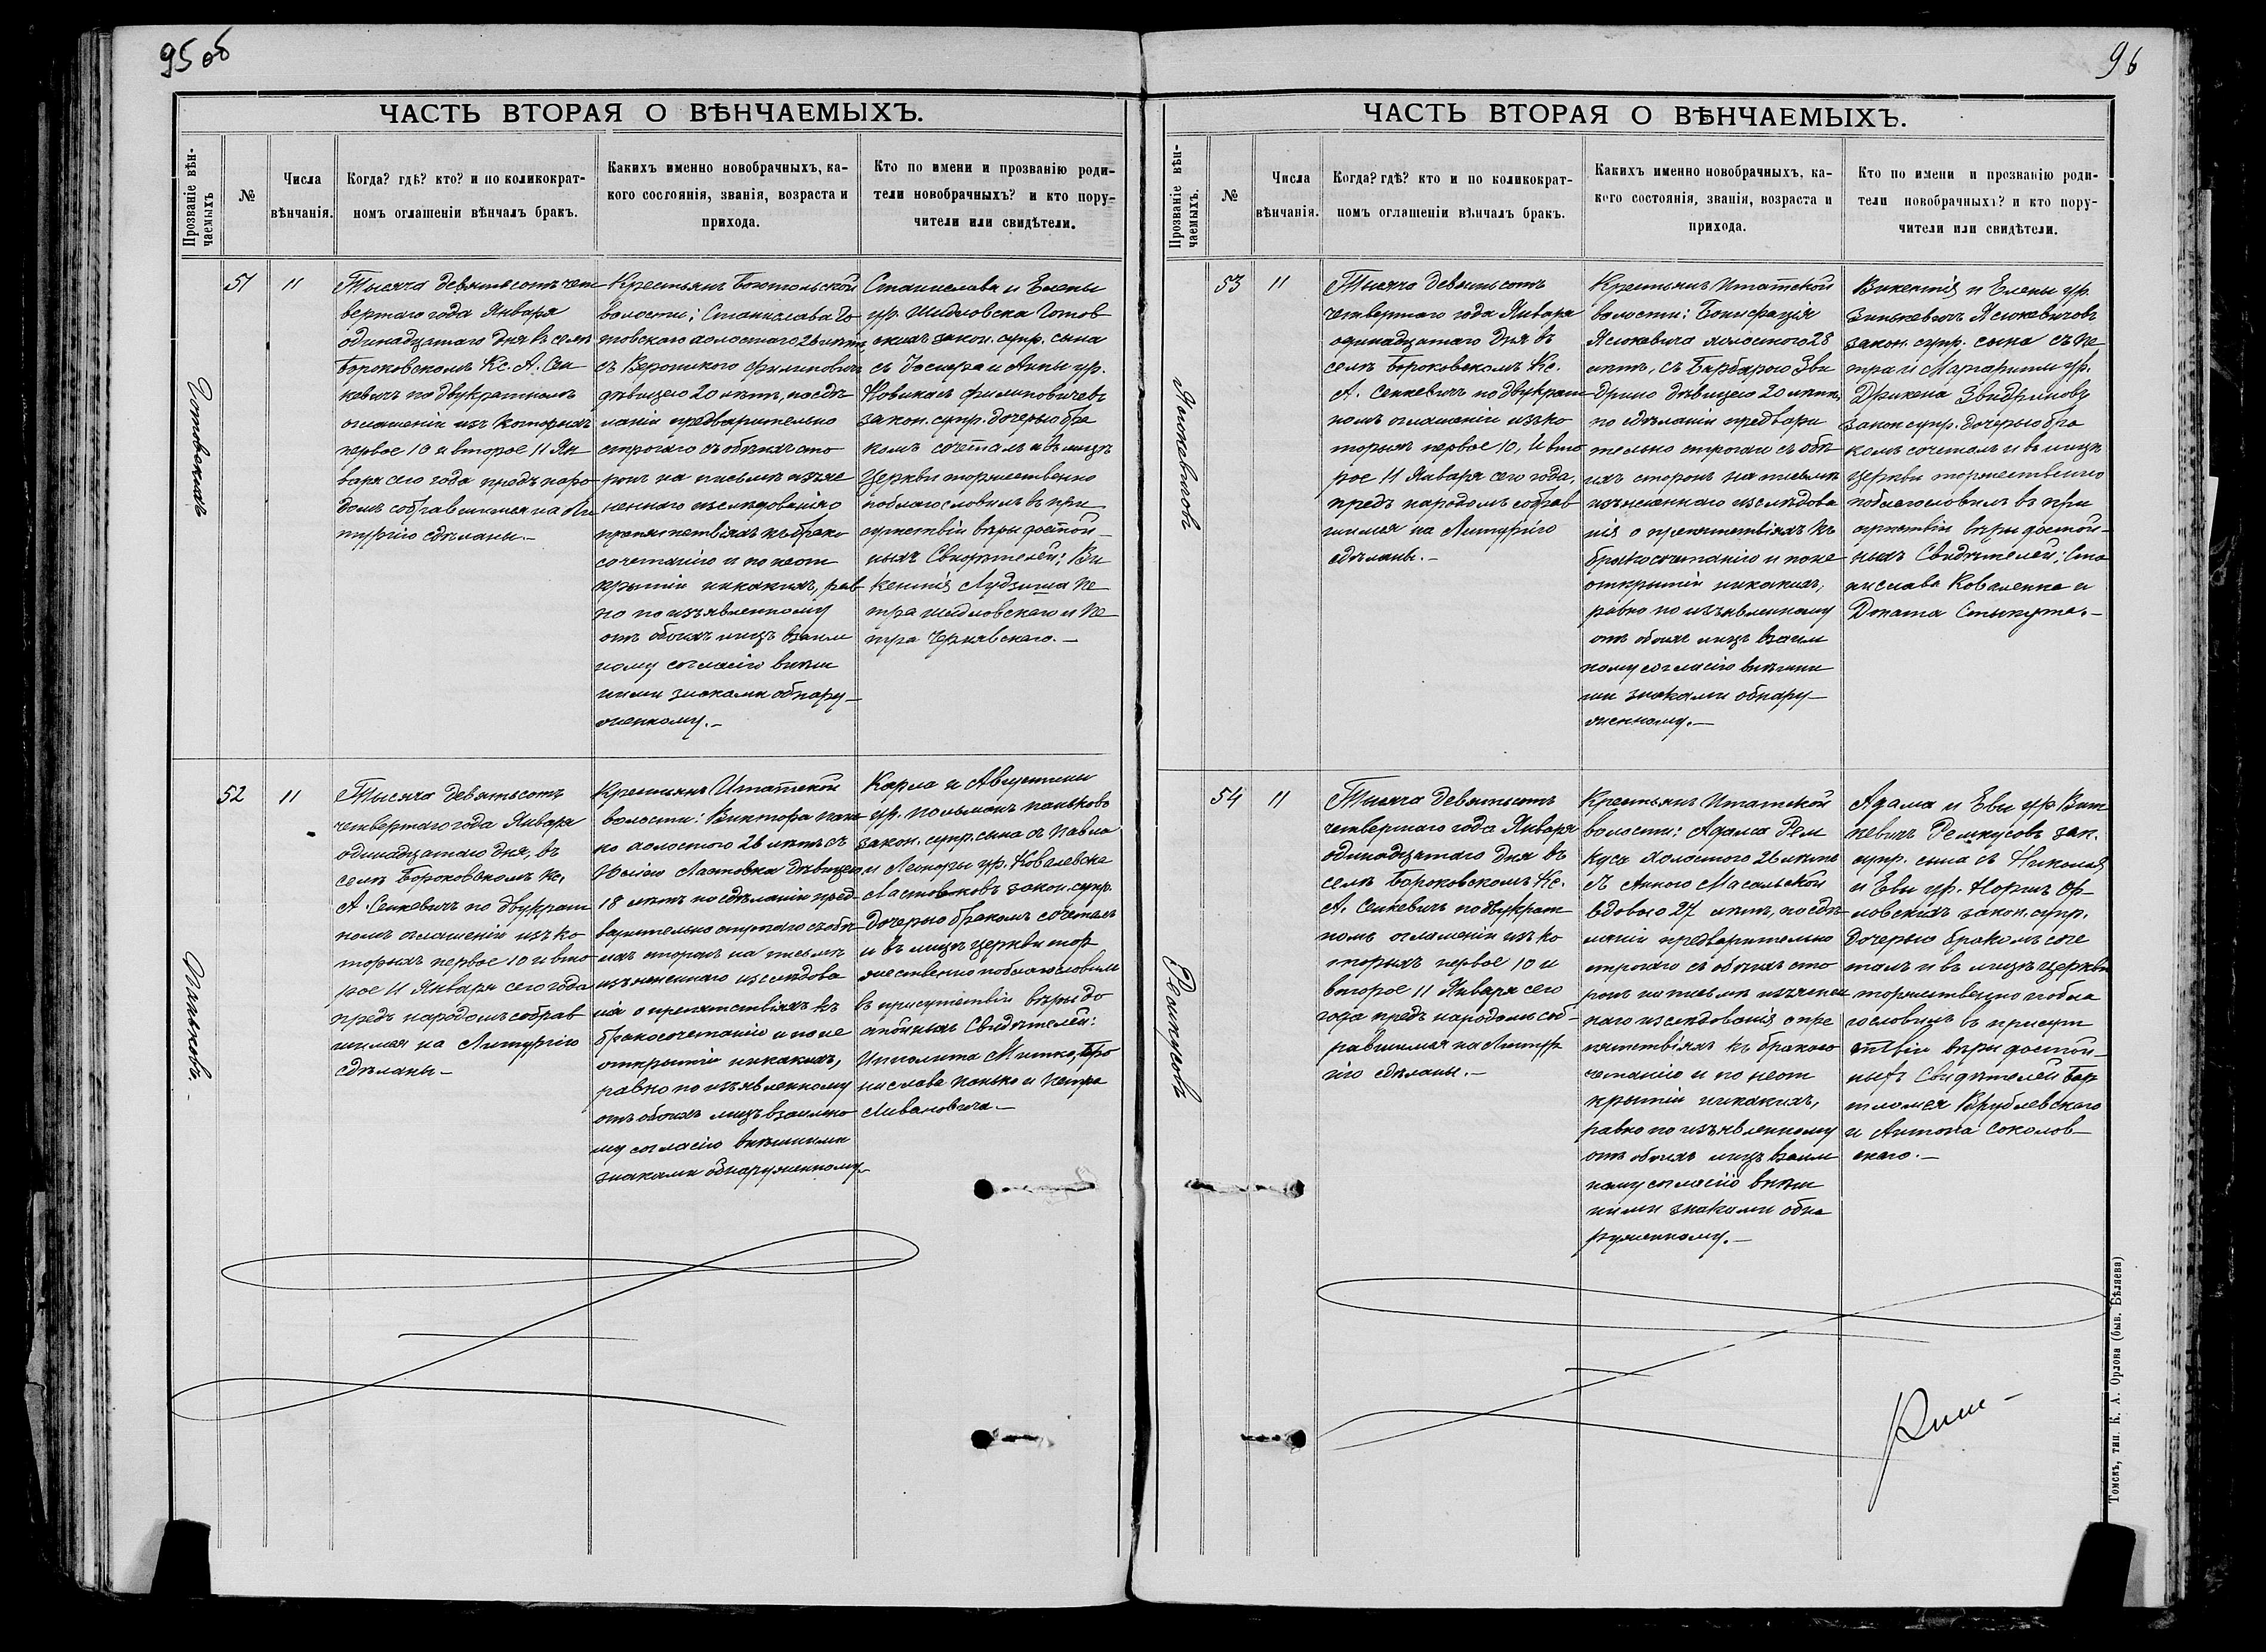 95 об
ЧАСТЬ ВТОРАЯ О ВѢНЧАЕМЫХЪ.
Прозваніе вѣн-
чаемыхъ
№
Числа
вѣнчанія.
Когда? гдѣ? кто? и по коликократ-
номъ оглашеніи вѣнчалъ бракъ.
Какихъ именно новобрачныхъ, ка-
кого состоянія, званія, возраста и
прихода.
Кто по имени и прозванію роди-
тели новобрачныхъ? и кто пору-
чители или свидѣтели.
Готовскихъ
51
11
Тысяча девятьсотъ чет
вертаго года Января
одинадцатаго дня въ селѣ
Бороковскомъ Кс. А. Сен
кевичъ по двукратномъ
оглашеніи изъ которыхъ
первое 10 и второе 11 Ян
варя сего года предъ наро
домъ собравшимся на Ли
тургію сдѣланы.-
Крестьянъ Боготольской
волости: Станислава Го
товскаго холостого 26 лѣтъ,
съ Вероникою Филиповичъ
дѣвицею 20 лѣтъ, по сдѣ
ланіи предварительно
строгаго съ обѣихъ сто
ронъ на письмѣ изъяс
неннаго изслѣдованію
препятствіяхъ къ брако
сочетанію и по неот
крытіи никакихъ, рав
но по изъявленному
отъ обоихъ лицъ взаим
ному согласію внѣш
ними знаками обнару-
женному.-
Станислава и Елены
ур. Шидловска Готов
скихъ закон. супр. сына
съ Іосифа и Анны ур.
Новикъ Филиповичевъ
закон. супр. дочерью бра
комъ сочеталъ и въ лицѣ
Церкви торжественно
поблагословилъ въ при
сутствіи вѣры достой-
ныхъ Свидѣтелей: Ви
кентія Лудзиша Пе
тра Шидловскаго и Пе
тра Чернявскаго.-
Паньковъ.
52
11
Тысяча девятьсотъ
четвертаго года Января
одинадцатаго дня, въ
селѣ Бороковскомъ Кс.
А. Сенкевичъ по двукрат
номъ оглашеніи изъ ко
торыхъ первое 10 и вто
рое 11 Января сего года
предъ народомъ собрав
шимся на Литургію
сдѣланы-
Крестьянъ Итатской
волости: Виктора Пань
ко холостого 26 лѣтъ съ
Юліею Ластовка дѣвицею
18 лѣтъ по сдѣланіи пред
варительно строгаго съ обѣ
ихъ сторонъ на письмѣ
изъясненнаго изслѣдова
нія о препятствіяхъ къ
бракосочетанію и по не
открытіи никакихъ,
равно по изъявленному
отъ обоихъ лицъ взаимно
му согласію внѣшними
знаками обнаруженному-
Карла и Августины
ур. Польманъ Паньковъ
закон. супр. сына съ Павла
и Леоноры ур. Ковалевска
Ластовковъ закон. супр.
дочерью бракомъ сочеталъ
и въ лицѣ Церкви тор
жественно поблагословилъ
въ присутствіи вѣры до
стойныхъ Свидѣтелей:
Ипполита Митко, Бро
нислава Панько и Петра
Ливановича.-
96
ЧАСТЬ ВТОРАЯ О ВѢНЧАЕМЫХЪ.
Прозваніе вѣн-
чаемыхъ.
№
Числа
вѣнчанія.
Когда? гдѣ? кто и по коликократ-
номъ оглашеніи вѣнчалъ бракъ.
Какихъ именно новобрачныхъ, ка-
кого состоянія, званія, возраста и
прихода.
Кто по имени и прозванію роди-
тели новобрачныхъ? и кто пору-
чители или свидѣтели.
Ясюкевичовъ
53
11
Тысяча девятьсотъ
четвертаго года Января
одинадцатаго дня въ
селѣ Бороковскомъ Кс.
А. Сенкевичъ по двукрат
номъ оглашеніи изъ ко
торыхъ первое 10, и вто
рое 11 Января сего года,
предъ народомъ собрав
шимся на Литургію
сдѣланы.-
Крестьянъ Итатской
волости: Бонифація
Ясюкевича холостого 28
лѣтъ, съ Барбарою Зви
дрино дѣвицею 20 лѣтъ,
по сдѣланіи предвари
тельно строгаго съ обѣ
ихъ сторонъ на письмѣ
изъясненнаго изслѣдова
нія о препятствіяхъ къ
бракосочетанію и по не
открытіи никакихъ,
равно по изъявленному
отъ обоихъ лицъ взаим
ному согласію внѣшни
ми знаками обнару-
женному.-
Викентія и Елены ур.
Зинкевичъ Ясюкевичовъ
закон. супр. сына съ Пе
тра и Маргариты ур.
Дрикена Звидриновъ
закон. супр. дочерью бра
комъ сочеталъ и въ лицѣ
Церкви торжественно
поблагословилъ въ при
сутствіи вѣры достой-
ныхъ Свидѣтелей: Ста
нислава Коваленка и
Доната Стыкута.-
Ремкусовъ
54
11
Тысяча девятьсотъ
четвертаго года Января
одинадцатаго дня въ
селѣ Бороковскомъ Кс.
А. Сенкевичъ по двукрат
номъ оглашеніи изъ ко
торыхъ первое 10 и
второе 11 Января сего
года предъ народомъ соб-
равшимся на Литур
гію сдѣланы.-
Крестьянъ Итатской
волости: Адама Рем
куса холостого 26 лѣтъ
съ Анною Масальской
вдовою 27 лѣтъ, по сдѣ-
ланіи предварительно
строгаго съ обоихъ сто
ронъ на письмѣ изъяснен
наго изслѣдованія о пре
пятствіяхъ къ бракосо
четанію и по неот
крытіи никакихъ,
равно по изъявленному
отъ обоихъ лицъ взаим
ному согласію внѣш
ними знаками обна
руженному.-
Адама и Евы ур. Вит
кевичъ Ремкусовъ зак.
супр. сына съ Николая
и Евы ур. Норпъ Ор
ловскихъ закон. супр.
дочерью бракомъ соче
талъ и въ лицѣ Церкви
торжественно побла
гословилъ въ присут
ствіи вѣры достой-
ныхъ Свидѣтелей Бар
тломея Врублевскаго
и Антона Соколов-
скаго.-
Томскъ, тип. К. А. Орлова (быв. Бѣляева)